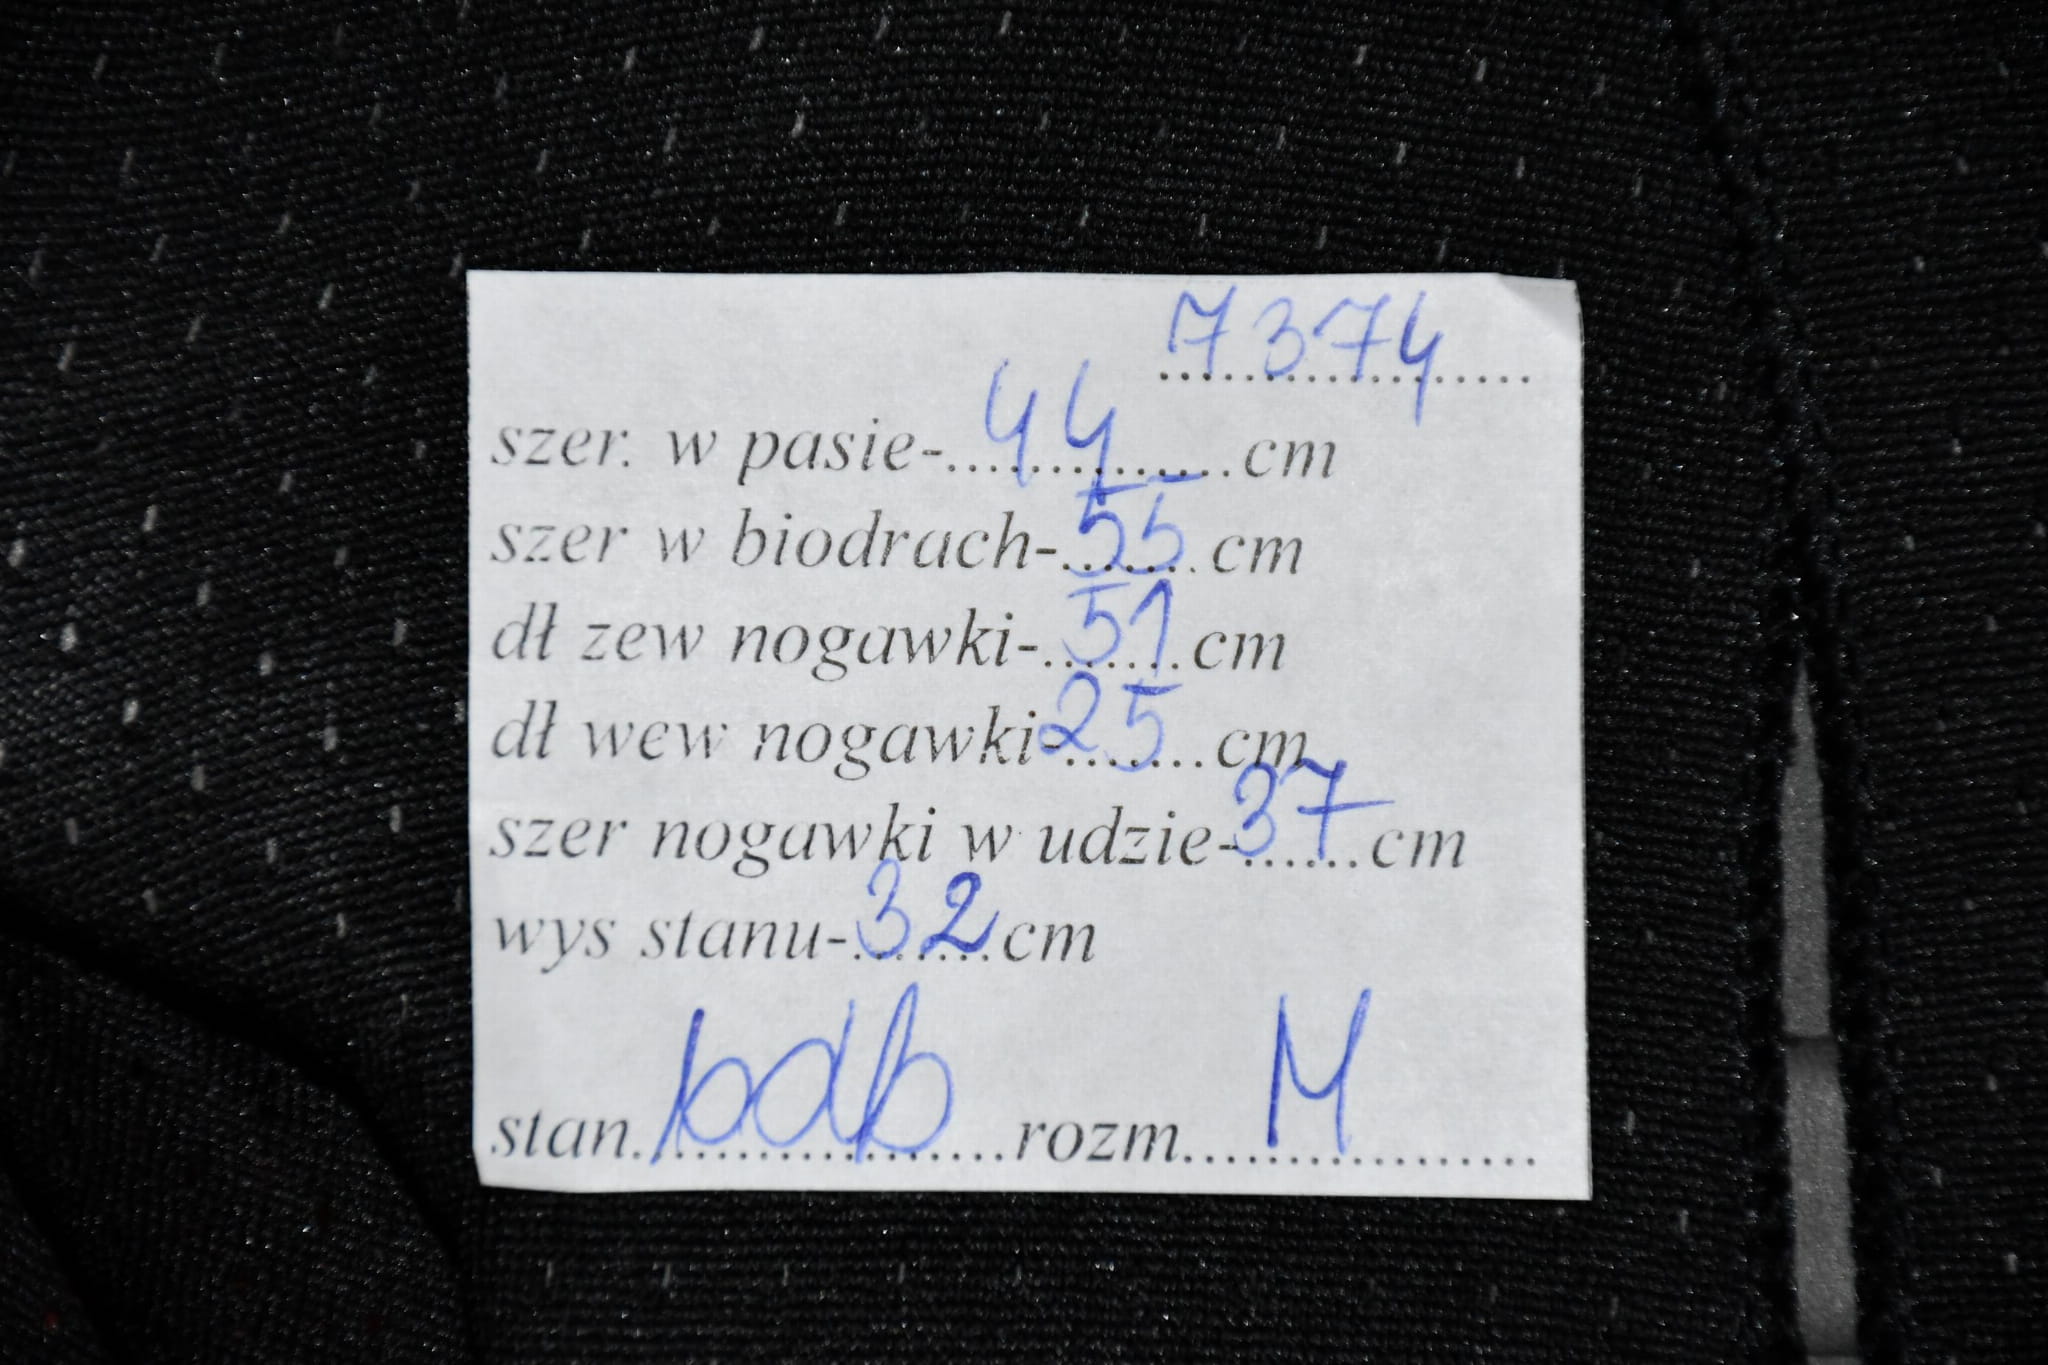 7374
szer. w pasie-44cm
szer w biodrach-55cm
dł zew nogawki-51cm
dł wew nogawki-25cm
szer nogawki w udzie-37cm
wys stanu-32cm
stan.bdb rozm.M